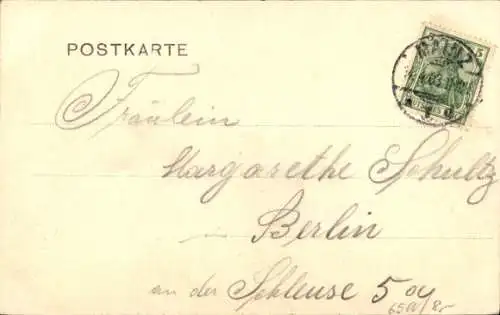 POSTKARTE
MAINZ
5
Fräulein
Margarethe Schultz
Berlin
an der Schleuse 5